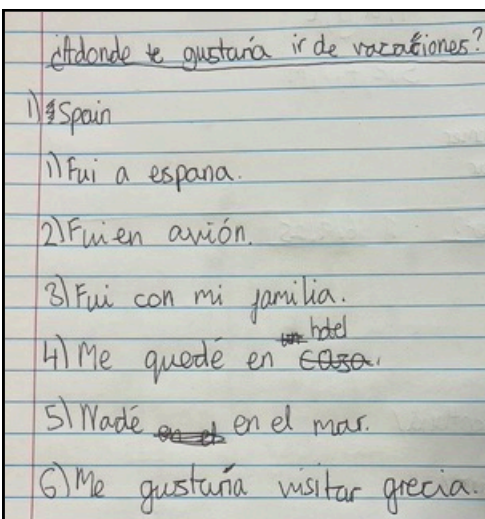 ¿Adonde te gustaría ir de vacaciones?
1) Spain
1) Fui a espana.
2) Fui en avión.
3) Fui con mi familia.
hotel
4) Me quedé en casa.
5) Nadé en el mar.
6) Me gustaría visitar grecia.